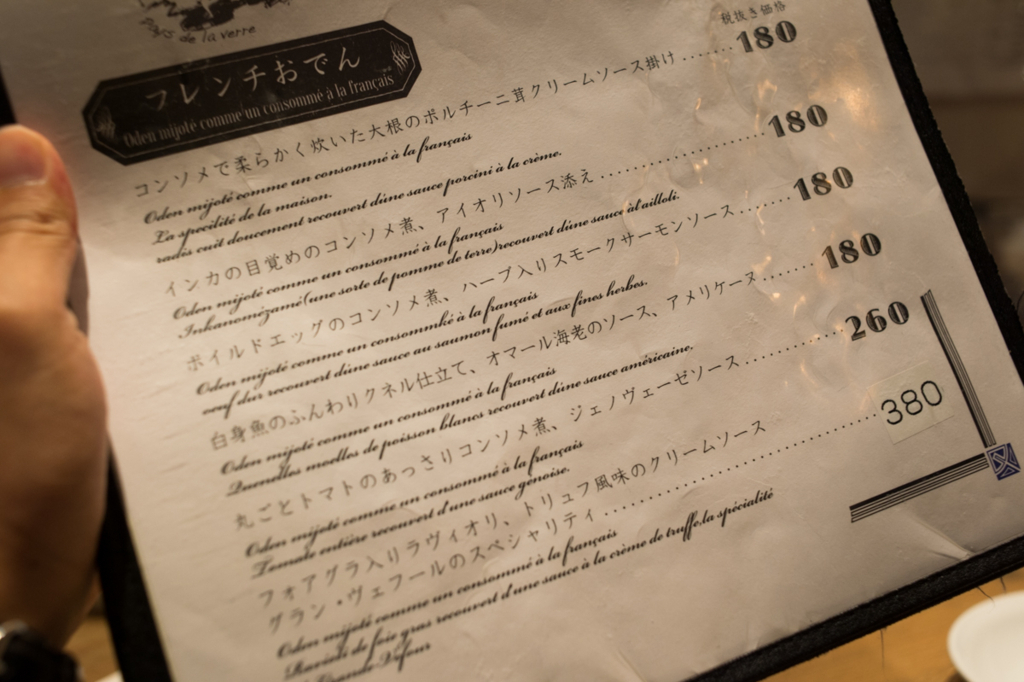 de la verre
フレンチおでん
Oden mijoté comme un consommé à la français
税抜き価格
コンソメで柔らかく炊いた大根のポルチーニ茸クリームソース掛け ....... 180
Oden mijoté comme un consommé à la français
La specilité de la maison.
radis cuit doucement recouvert dùne sauce porcini à la crème.
インカの目覚めのコンソメ煮、アイオリソース添え .................. 180
Oden mijoté comme un consommé à la français
Inkanomézamé(une sorte de pomme de terre)recouvert dùne sauce àlailloli.
ボイルドエッグのコンソメ煮、ハーブ入りスモークサーモンソース ...... 180
Oden mijoté comme un consommké à la français
oeuf dur recouvert dùne sauce au saumon fumé et aux fines herbes.
白身魚のふんわりクネル仕立て、オマール海老のソース、アメリケーヌ ...... 180
Oden mijoté comme un consommé à la français
Quenelles moelles de poisson blancs recouvert dùne sauce américaine.
丸ごとトマトのあっさりコンソメ煮、ジェノヴェーゼソース ............ 260
Oden mijoté comme un consommé à la français
Tomate entière recouvert d'une sauce génoise.
フォアグラ入りラヴィオリ、トリュフ風味のクリームソース
グラン・ヴェフールのスペシャリティ ........................... 380
Oden mijoté comme un consommé à la français
Ravioli de foie gras recouvert d'une sauce à la crème de truffe.la spécialité
Grande Vefour